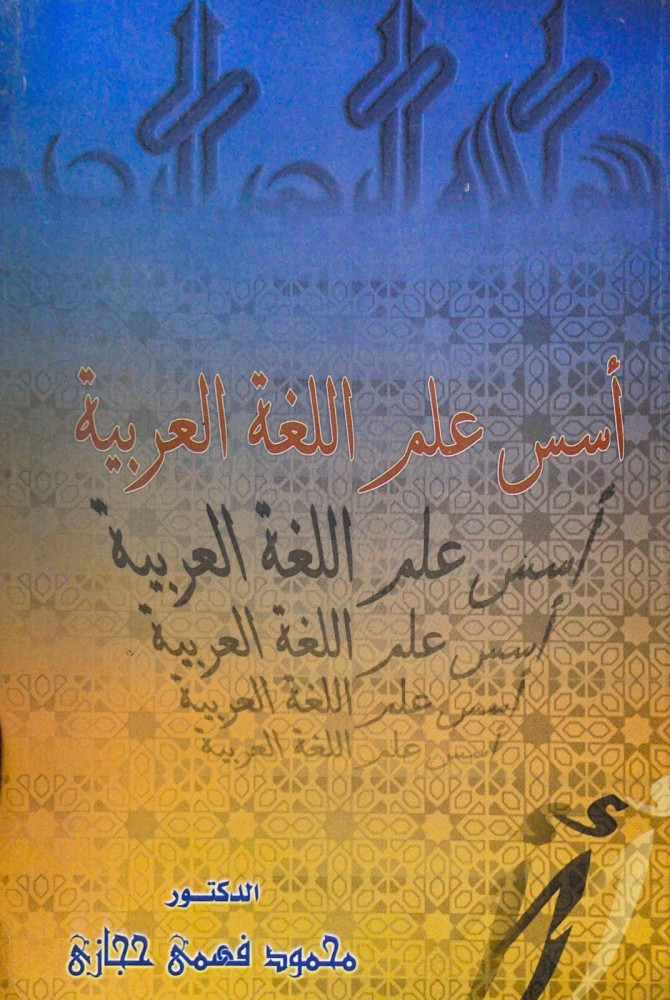 أسس علم اللغة العربية
أسس علم اللغة العربية
أسس علم اللغة العربية
أسس علم اللغة العربية
أسس علم اللغة العربية
أ
الدكتـور
محمود فهمى حجازى